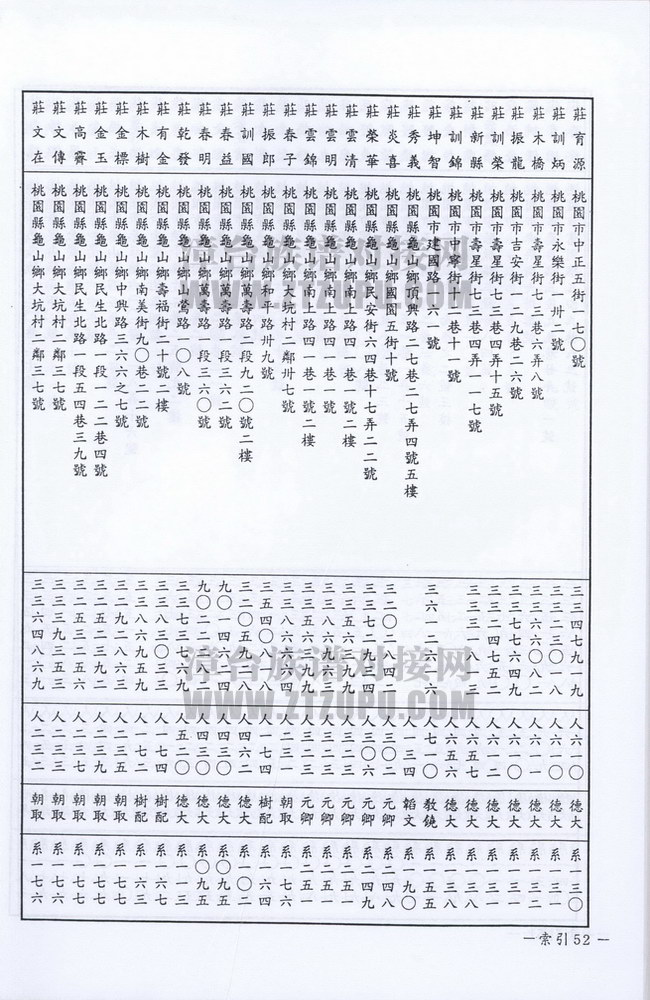 莊育源 桃園市中正五街一七〇號 三三四七九一九 人六一〇 德大 系一三〇
莊訓炳 桃園市永樂街一卅二號 三三二三〇一八 人六一一 德大 系一三一
莊木橋 桃園市壽星街七三巷六弄八號 三三六六〇八二 人六一一 德大 系一三一
莊振龍 桃園市吉安街一二九巷二六號 三三七七六四九 人六一〇 德大 系一三一
莊訓榮 桃園市壽星街七三巷四弄十五號 三三二四七五二 人六一二 德大 系一三一
莊新縣 桃園市壽星街七三巷四弄一一七號 三三三一八三 人六五七 德大 系一三八
莊訓錦 桃園市中寧街十二巷十一號 人六五六 德大 系一三八
莊坤智 桃園市建國路一六一號 三六一二六六 人七〇 敎饒 系一五五
莊秀義 桃園縣龜山鄉頂興路二七巷二七弄四號五樓 人一三四 韜文 系一九〇
莊炎喜 桃園縣龜山鄉國園五街十號 三二〇二八四二 人三〇一 元卿 系二四八
莊榮華 桃園縣龜山鄉民安街六四巷十七弄二二號 三三七二九三四 人三〇六 元卿 系二四九
莊雲清 桃園縣龜山鄉南上路四一巷一號二樓 三三五六九九九 人三二三 元卿 系二五一
莊雲明 桃園縣龜山鄉南上路四一巷一號 三三五八九六三 人三二三 元卿 系二五一
莊雲錦 桃園縣龜山鄉南上路四一巷一號二樓 人三二三 元卿 系二五一
莊春子 桃園縣龜山鄉大坑村二鄰卅七號 三三八六六六四 人二三一 朝取 系一七六
莊振郎 桃園縣龜山鄉和平路卅九號 三五四〇一八八 人一七四 樹配 系一六四
莊訓國 桃園縣龜山鄉萬壽路二段九二〇號二樓 三二〇五九二八 人四六二 德大 系一〇二
莊春益 桃園縣龜山鄉萬壽路一段三六二號 九〇一四六四四 人四三〇 德大 系〇九五
莊春明 桃園縣龜山鄉萬壽路一段三六〇號 九〇二二八八二 人四三〇 德大 系〇九五
莊乾發 桃園縣龜山鄉山鶯路一〇八號 三三七三七六九 人五二〇 德大 系一一三
莊有金 桃園縣龜山鄉壽福街二十號二樓 三三八三〇三三 人一七四 樹配 系一六七
莊木樹 桃園縣龜山鄉南美街九〇巷二二號 三三八六九五五 人一七二 樹配 系一六三
莊金標 桃園縣龜山鄉中興路三六六之七號 三二九二八六三 人二三五 朝取 系一七七
莊金玉 桃園縣龜山鄉民生北路一段一二二巷四號 三二五二三九二 人二三九 朝取 系一七七
莊高霽 桃園縣龜山鄉民生北路一段五四巷三九號 三二五三二五三 人二三七 朝取 系一七七
莊文傳 桃園縣龜山鄉大坑村二鄰三七號 三三三九三五三 人二三二 朝取 系一七六
莊文在 桃園縣龜山鄉大坑村二鄰三七號 三三六四八六九 人二三二 朝取 系一七六
漳台族谱对接网
WWW.ZTZUPU.COM
漳台族谱对接网
WWW.ZTZUPU.COM
—索引52—